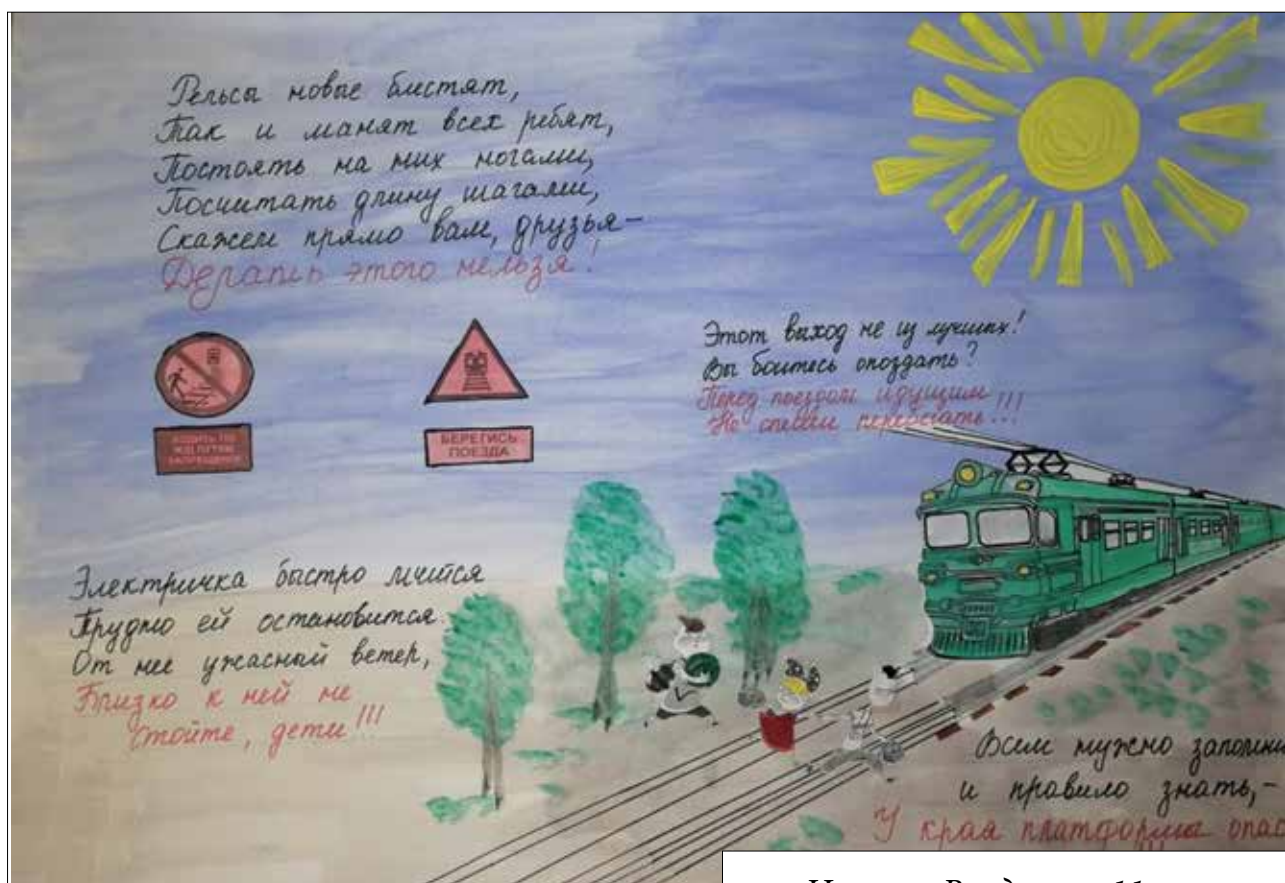 Рельсы новые блистят,
Так и манят всех ребят,
Постоять на них ногами,
Посчитать длину шагами,
Скажем прямо вам, друзья-
Делать этого нельзя!
Этот выход не из лучших!
Вы боитесь опоздать?
Перед поездом идущим
Не спеши перебегать!!!
ХОДИТЬ ПО
Ж/Д ПУТЯМ
ЗАПРЕЩЕНО
БЕРЕГИСЬ
ПОЕЗДА
Электричка быстро мчится
Трудно ей остановится.
От нее ужасный ветер,
Близко к ней не
стойте, дети!!!
Всем нужно
и правило знать,-
У края платформы